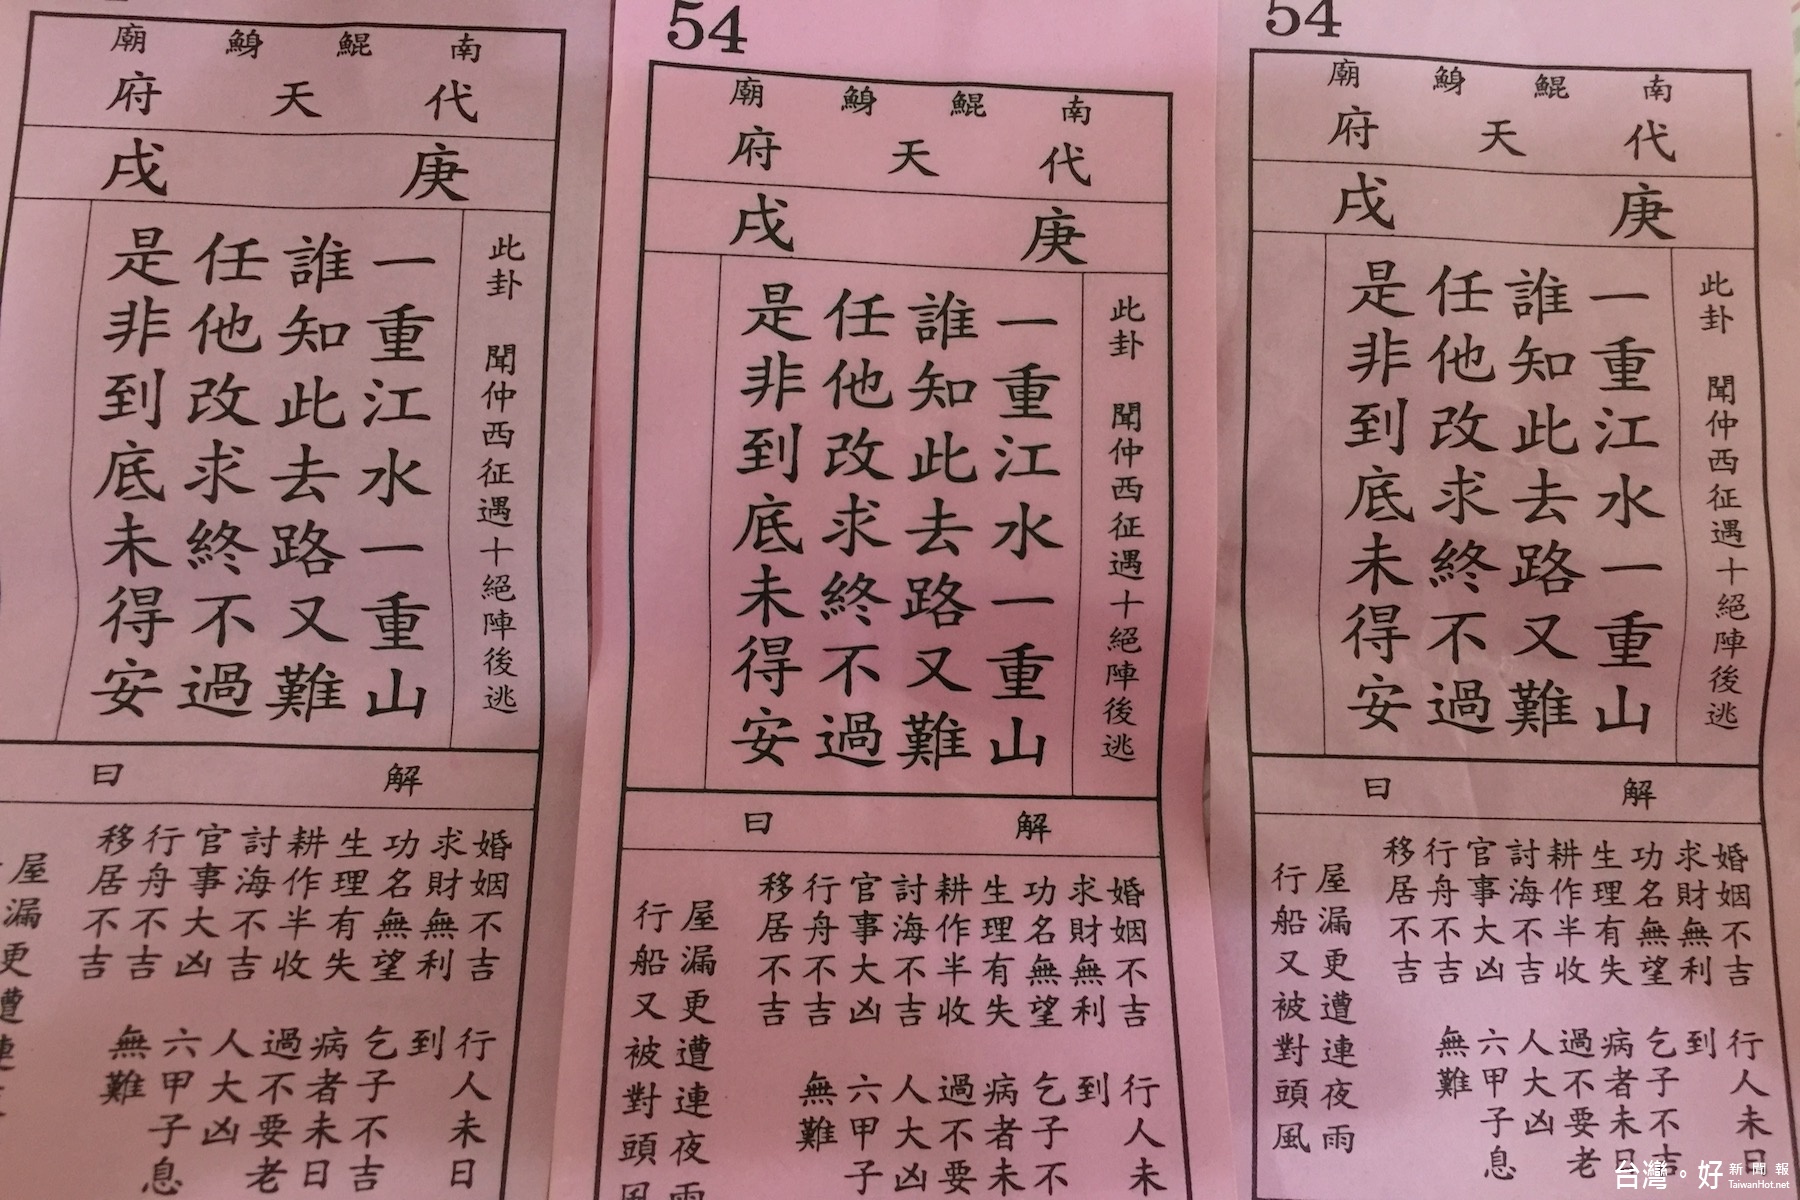 南鯤鯓廟
代天府
庚戌
此卦 聞仲西征遇十絕陣後逃
一重江水一重山
誰知此去路又難
任他改求終不過
是非到底未得安
解曰
婚姻不吉
求財無利
功名無望
生理有失
耕作半收
討海不吉
官事大凶
行舟不吉
移居不吉
行人未日
到
乞子不吉
病者未日
過不要老
人大凶
六甲子息
無難
屋漏更遭連
54
南鯤鯓廟
代天府
庚戌
此卦 聞仲西征遇十絕陣後逃
一重江水一重山
誰知此去路又難
任他改求終不過
是非到底未得安
解曰
婚姻不吉
求財無利
功名無望
生理有失
耕作半收
討海不吉
官事大凶
行舟不吉
移居不吉
行人未
到
乞子不
病者未
過不要
人大凶
六甲子
無難
屋漏更遭連夜雨
行船又被對頭風
54
南鯤鯓廟
代天府
庚戌
此卦 聞仲西征遇十絕陣後逃
一重江水一重山
誰知此去路又難
任他改求終不過
是非到底未得安
解曰
婚姻不吉
求財無利
功名無望
生理有失
耕作半收
討海不吉
官事大凶
行舟不吉
移居不吉
行人未日
到
乞子不吉
病者未日
過不要老
人大凶
六甲子息
無難
屋漏更遭連夜雨
行船又被對頭風
台灣。好新聞報
TaiwanHot.net